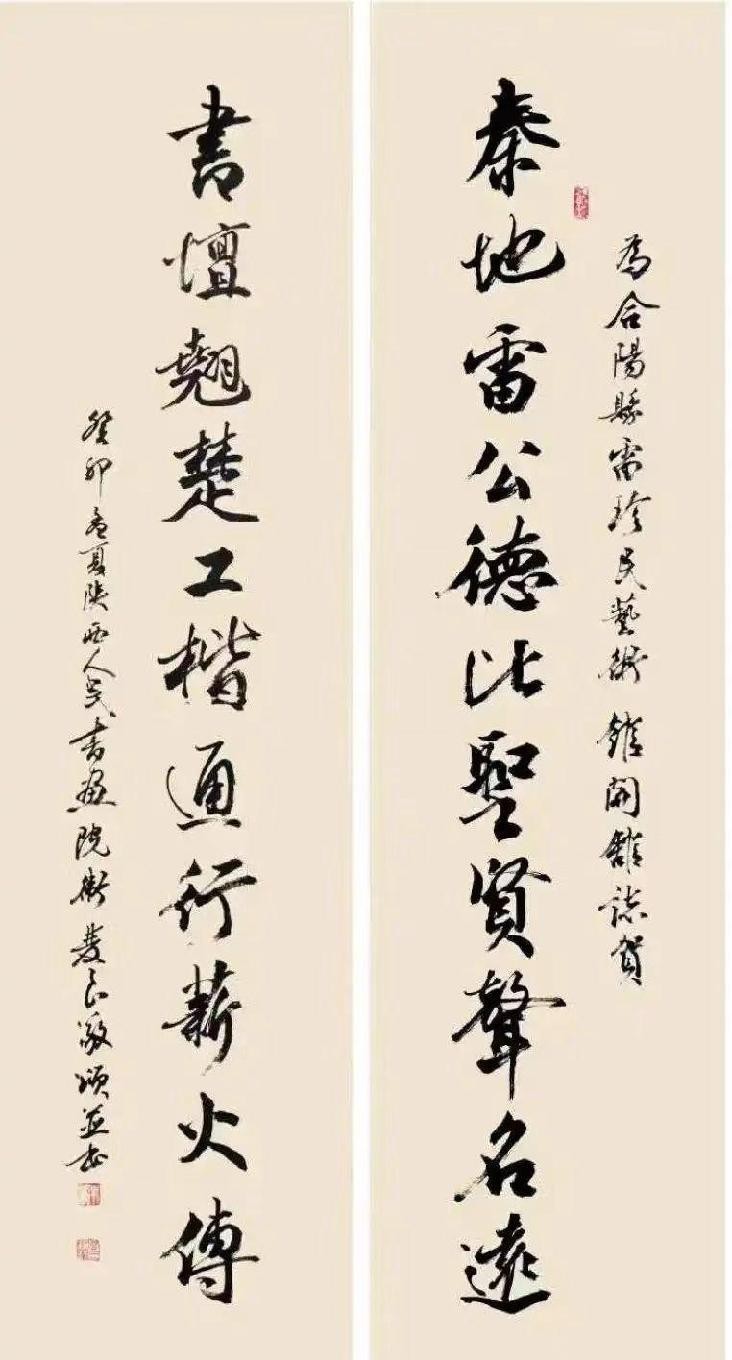 為合陽縣雷珍民藝術館開館誌賀
秦地雷公德比聖賢聲名遠
書壇翹楚工楷通行薪火傳
癸卯孟夏陝西人民書畫院衛雙良敬頌並書